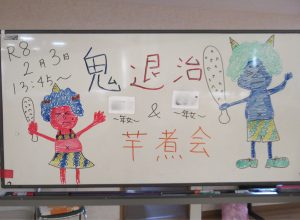 R8
2月3日
13:45~
鬼退治
&
~年女~
~年女~
芋煮会